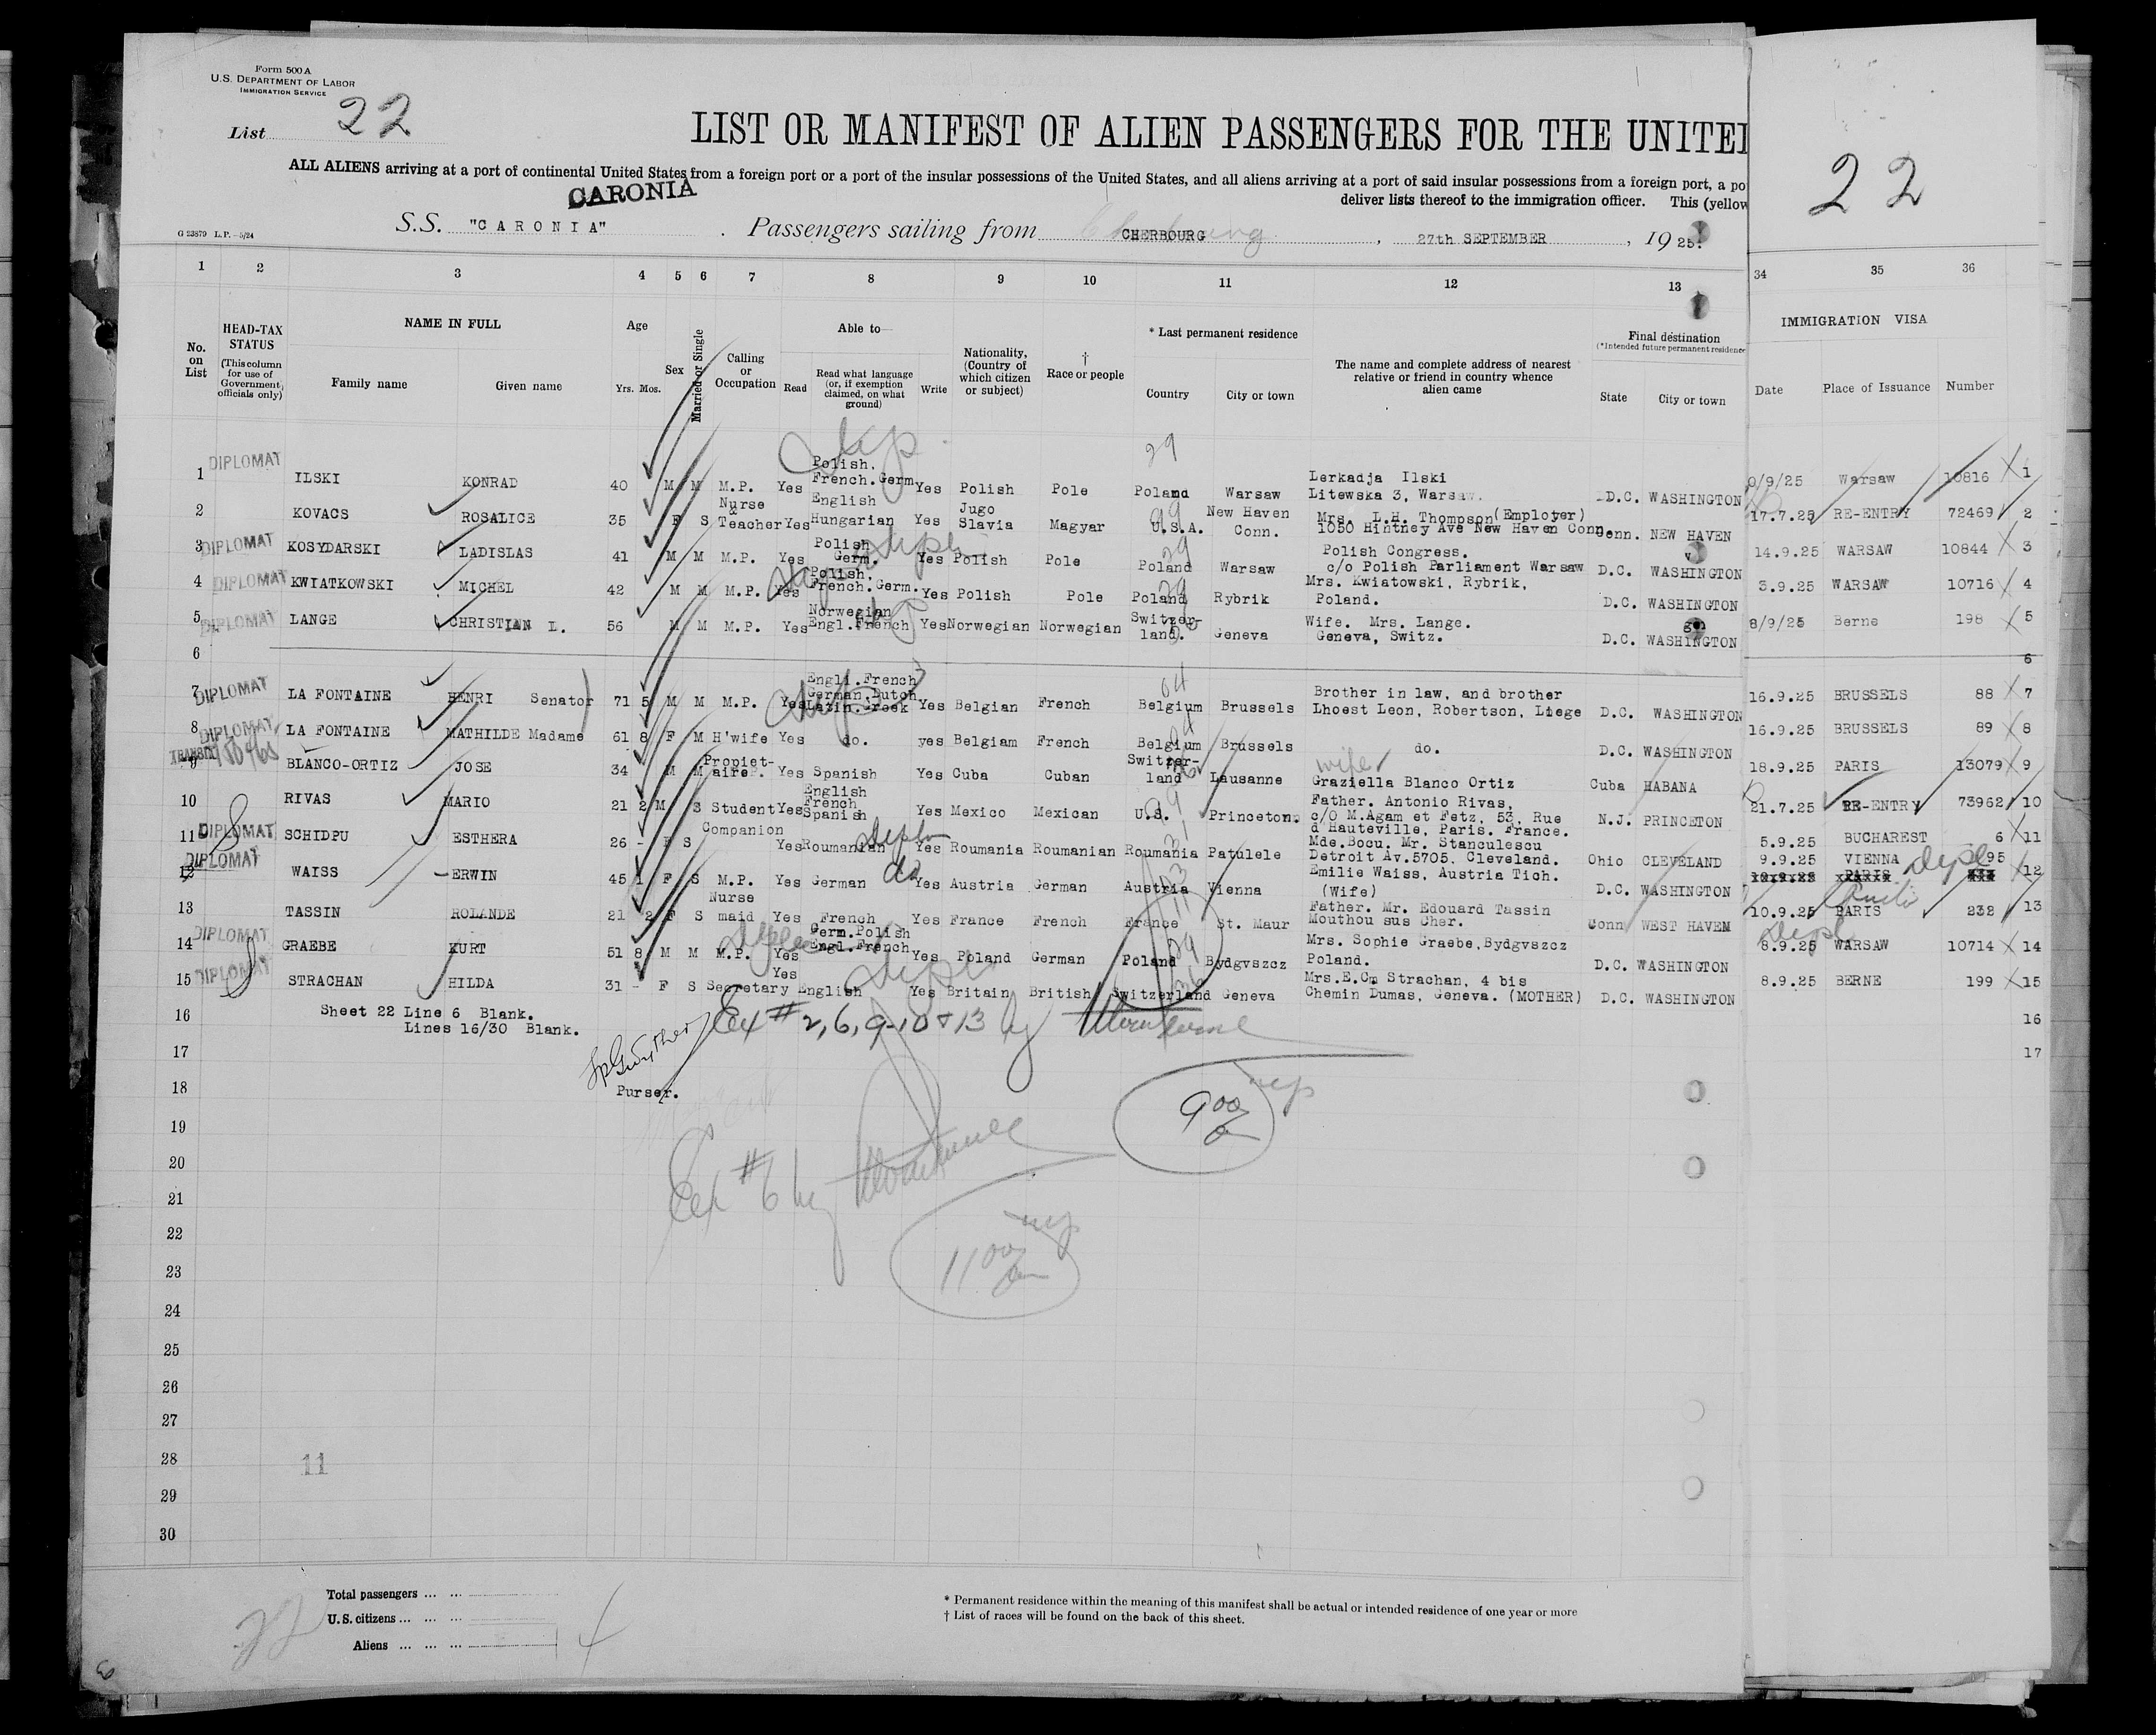 Form 500A
U.S. DEPARTMENT OF LABOR
IMMIGRATION SERVICE
List 22
LIST OR MANIFEST OF ALIEN PASSENGERS FOR THE UNITE
22
ALL ALIENS arriving at a port of continental United States from a foreign port or a port of the insular possessions of the United States, and all aliens arriving at a port of said insular possessions from a foreign port, a po
deliver lists thereof to the immigration officer. This (yellow
CARONIA
G 23879 L.P.—5/24
S.S. "CARONIA". Passengers sailing from CHERBOURG, 27th SEPTEMBER, 1925.
1 2 3 4 5 6 7 8 9 10 11 12 13 34 35 36
No. on List
HEAD-TAX STATUS
(This column for use of Government officials only)
NAME IN FULL
Family name Given name
Age
Yrs. Mos.
Sex
Married or Single
Calling or Occupation
Able to—
Read
Read what language (or, if exemption claimed, on what ground)
Write
Nationality, (Country of which citizen or subject)
† Race or people
* Last permanent residence
Country City or town
The name and complete address of nearest relative or friend in country whence alien came
Final destination
(*Intended future permanent residence
State City or town
IMMIGRATION VISA
Date Place of Issuance Number
1 DIPLOMAT ILSKI KONRAD 40 M M M.P. Yes Polish. French.Germ. Yes Polish Pole Poland Warsaw Lerkadja Ilski Litewska 3, Warsaw. D.C. WASHINGTON 0/9/25 Warsaw 10816 1
2 KOVACS ROSALICE 35 F S Nurse & Teacher Yes English Hungarian Yes Jugo Slavia Magyar U.S.A. New Haven Conn. Mrs. L.H. Thompson(Employer) 1050 Hintney Ave New Haven Conn. Conn. NEW HAVEN 17.7.25 RE-ENTRY 72469 2
3 DIPLOMAT KOSYDARSKI LADISLAS 41 M M M.P. Yes Polish Germ. Yes Polish Pole Poland Warsaw Polish Congress. c/o Polish Parliament Warsaw D.C. WASHINGTON 14.9.25 WARSAW 10844 3
4 DIPLOMAT KWIATKOWSKI MICHEL 42 M M M.P. Yes Polish. French.Germ. Yes Polish Pole Poland Rybrik Mrs. Kwiatowski, Rybrik, Poland. D.C. WASHINGTON 3.9.25 WARSAW 10716 4
5 DIPLOMAT LANGE CHRISTIAN L. 56 M M M.P. Yes Norwegian Engl.French Yes Norwegian Norwegian Switzer-land. Geneva Wife. Mrs. Lange. Geneva, Switz. D.C. WASHINGTON 8/9/25 Berne 198 5
6 6
7 DIPLOMAT LA FONTAINE HENRI Senator 71 5 M M M.P. Yes Engli.French German.Dutch Latin.Greek Yes Belgian French Belgium Brussels Brother in law, and brother Lhoest Leon, Robertson, Liege D.C. WASHINGTON 16.9.25 BRUSSELS 88 7
8 DIPLOMAT LA FONTAINE MATHILDE Madame 61 8 F M H'wife Yes do. yes Belgiam French Belgium Brussels do. D.C. WASHINGTON 16.9.25 BRUSSELS 89 8
9 BLANCO-ORTIZ JOSE 34 M M Propiet-aire. Yes Spanish Yes Cuba Cuban Switzer-land Lausanne wife Graziella Blanco Ortiz Cuba HABANA 18.9.25 PARIS 13079 9
10 RIVAS MARIO 21 2 M S Student Yes English French Spanish Yes Mexico Mexican U.S. Princeton. Father. Antonio Rivas, c/O M.Agam et Fetz, 53, Rue d'Hauteville, Paris. France. N.J. PRINCETON 21.7.25 RE-ENTRY 73962 10
11 DIPLOMAT SCHIDPU ESTHERA 26 - F S Companion Yes Roumanian Yes Roumania Roumanian Roumania Patulele Mde.Bocu. Mr. Stanculescu Detroit Av.5705. Cleveland. Ohio CLEVELAND 5.9.25 BUCHAREST 6 11
12 DIPLOMAT WAISS ERWIN 45 1 F S M.P. Yes German Yes Austria German Austria Vienna Emilie Waiss, Austria Tich. (Wife) D.C. WASHINGTON 9.9.25 VIENNA 95 12
13 TASSIN ROLANDE 21 2 F S Nurse maid Yes French Yes France French France St. Maur Father. Mr. Edouard Tassin Mouthou sus Cher. Conn WEST HAVEN 10.9.25 PARIS 232 13
14 DIPLOMAT GRAEBE KURT 51 8 M M M.P. Yes Germ.Polish Engl.French Yes Poland German Poland Bydgvszcz Mrs. Sophie Graebe,Bydgvszcz Poland. D.C. WASHINGTON 8.9.25 WARSAW 10714 14
15 DIPLOMAT STRACHAN HILDA 31 - F S Secretary Yes English Yes Britain British Switzerland Geneva Mrs.E.Cm Strachan, 4 bis Chemin Dumas, Geneva. (MOTHER) D.C. WASHINGTON 8.9.25 BERNE 199 15
16 Sheet 22 Line 6 Blank. 16
Lines 16/30 Blank.
Ex # 2, 6, 9-10 & 13 by
17 17
Purser.
18
900
19
20
Ex #6 by
21
22
23
1100
24
25
26
27
28 11
29
30
Total passengers ... ...
U.S. citizens ... ... ...
Aliens ... ... ...
22
* Permanent residence within the meaning of this manifest shall be actual or intended residence of one year or more
† List of races will be found on the back of this sheet.